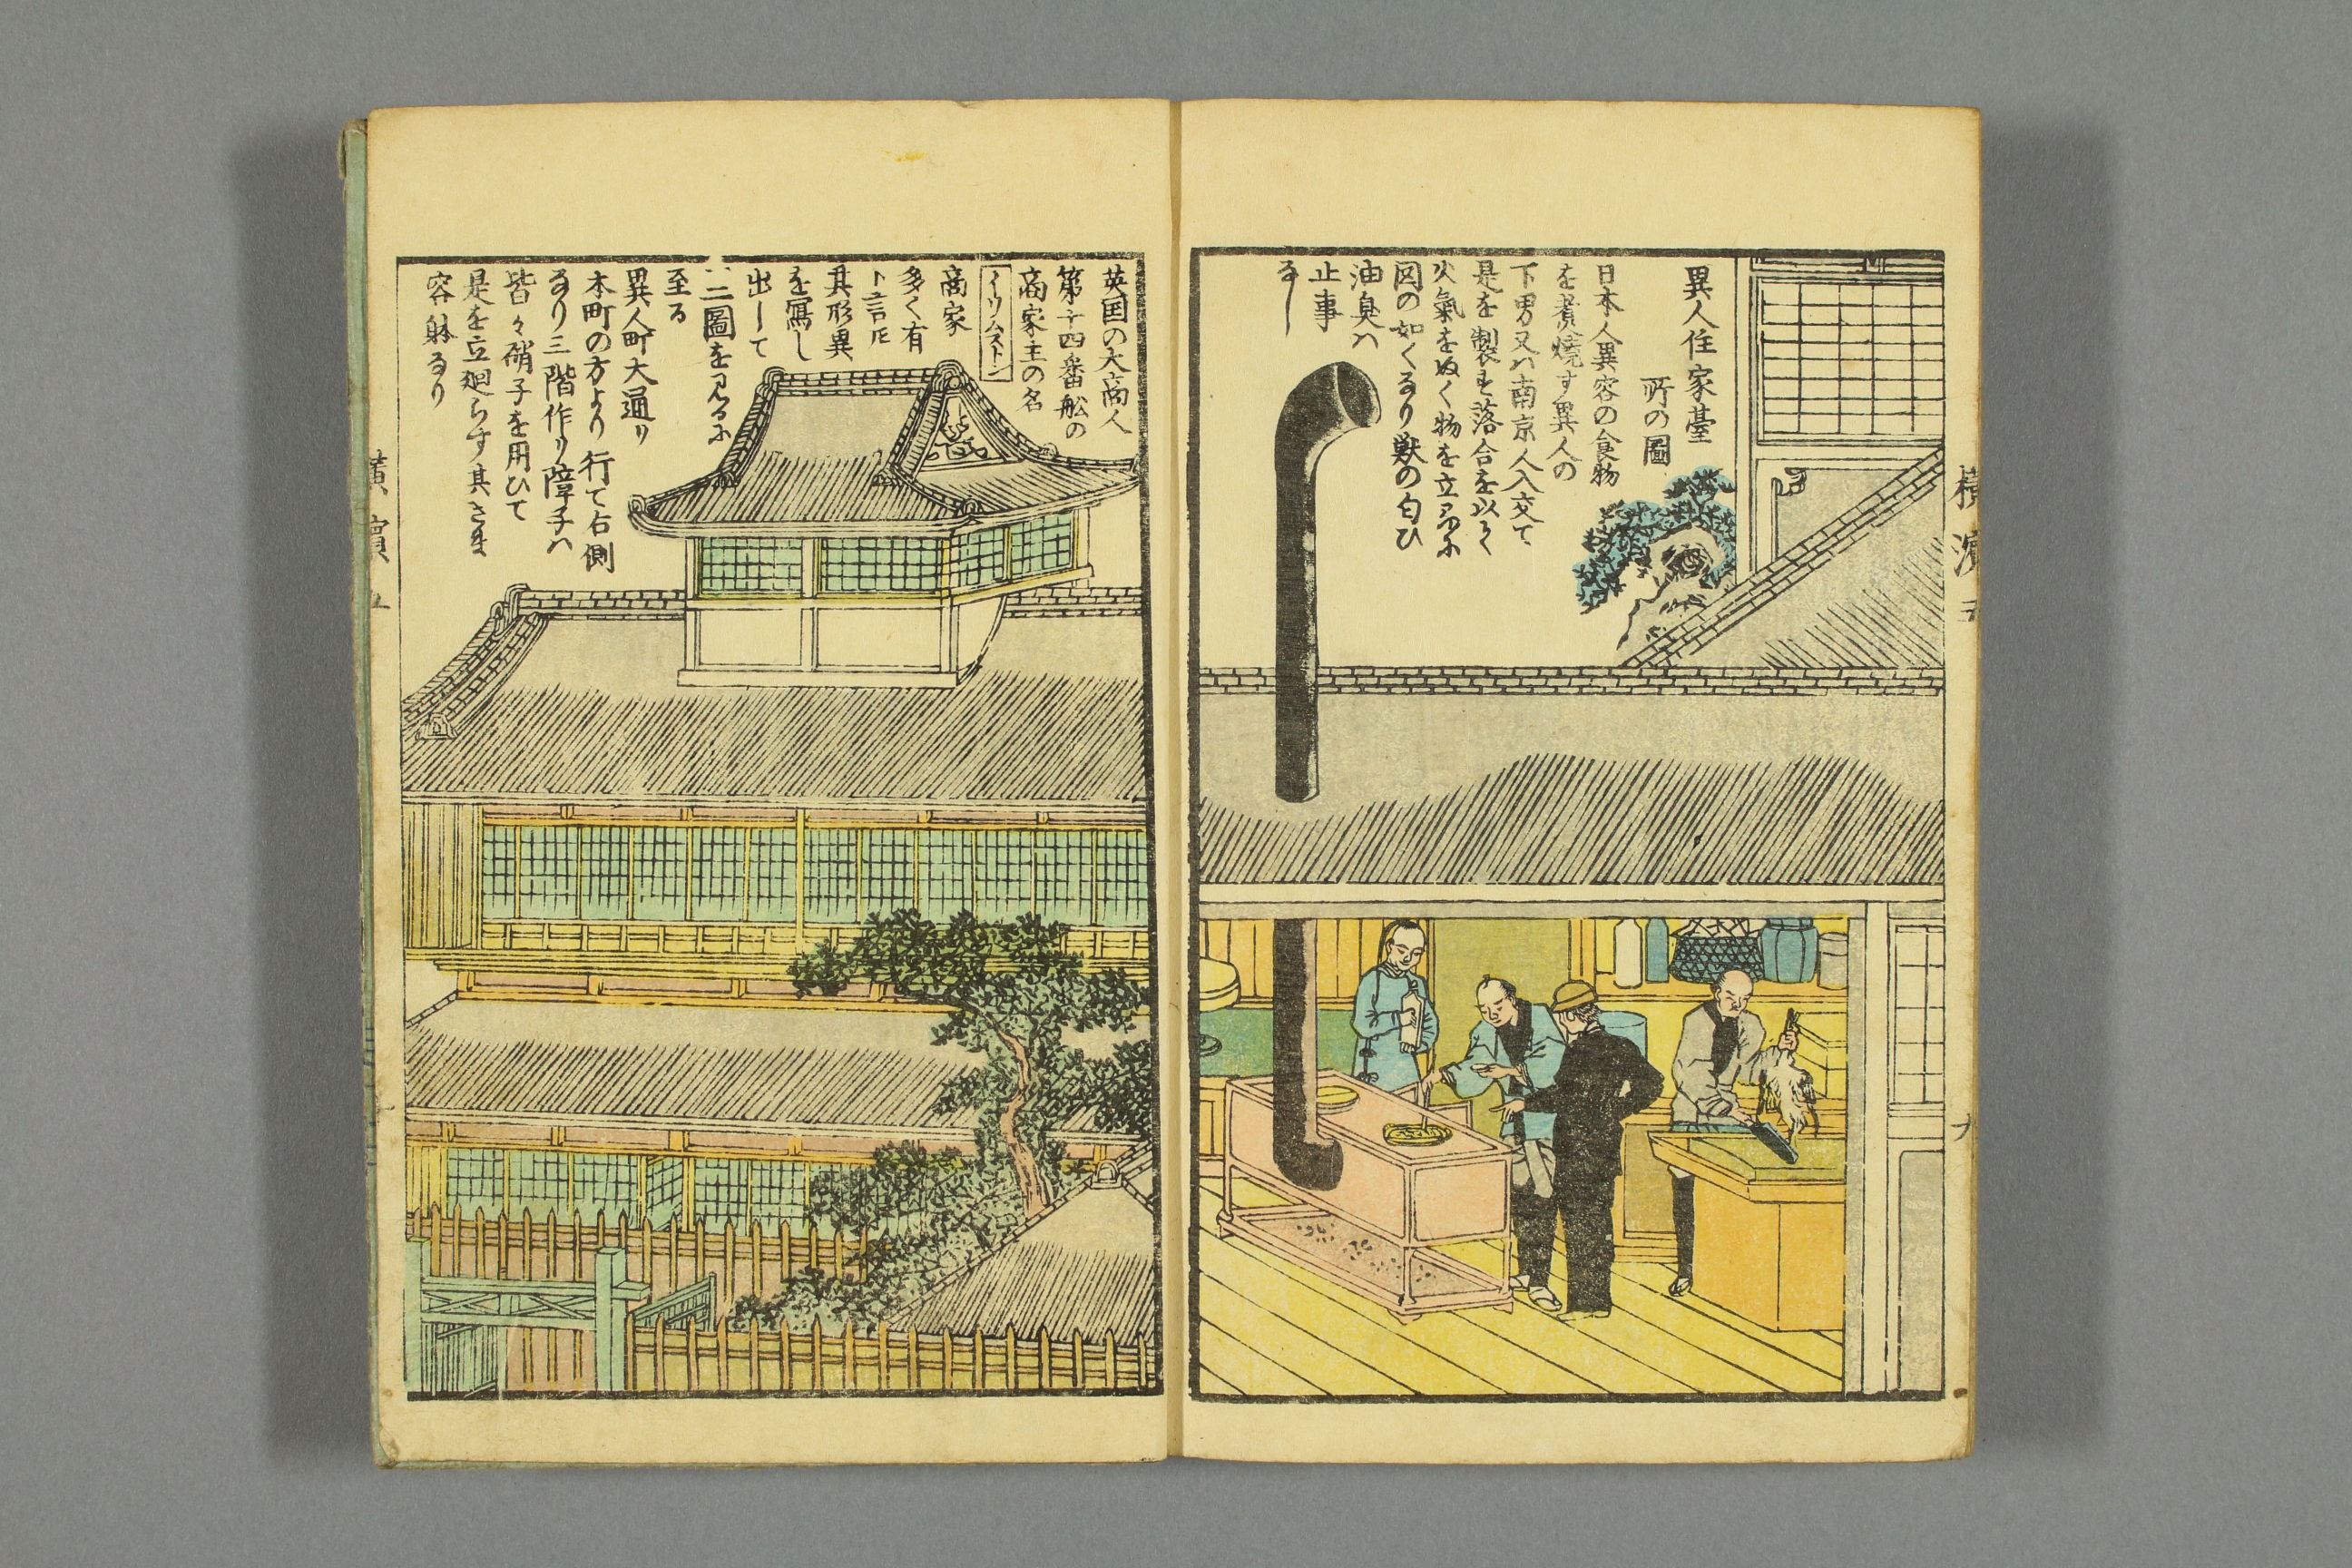 異人住家臺
所の圖
日本人異容の食物
を煮燒す異人の
下男又ハ南京人入交て
是を製す落合を以て
火氣をぬく物を立るに
図の如くなり獣の匂ひ
油臭ハ
止事
なし
横濱 五
九
英国の大商人
第五十四番舩の
商家主の名
イソムストン
商家
多く有
ト言圧
其形異
を寫し
出して
二圖を見るに
至る
異人町大通り
本町の方より行て右側
なり三階作り障子ハ
皆々硝子を用ひて
是を立廻らす其さま
容躰なり
横濱 五